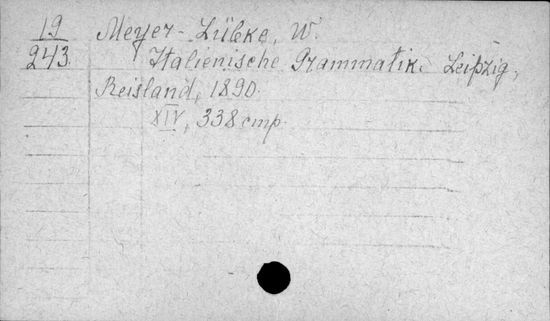 19 Meyer-Lübke, W.
243. Italienische Grammatik. Leipzig,
Reisland, 1890.
XIV, 338 стр.